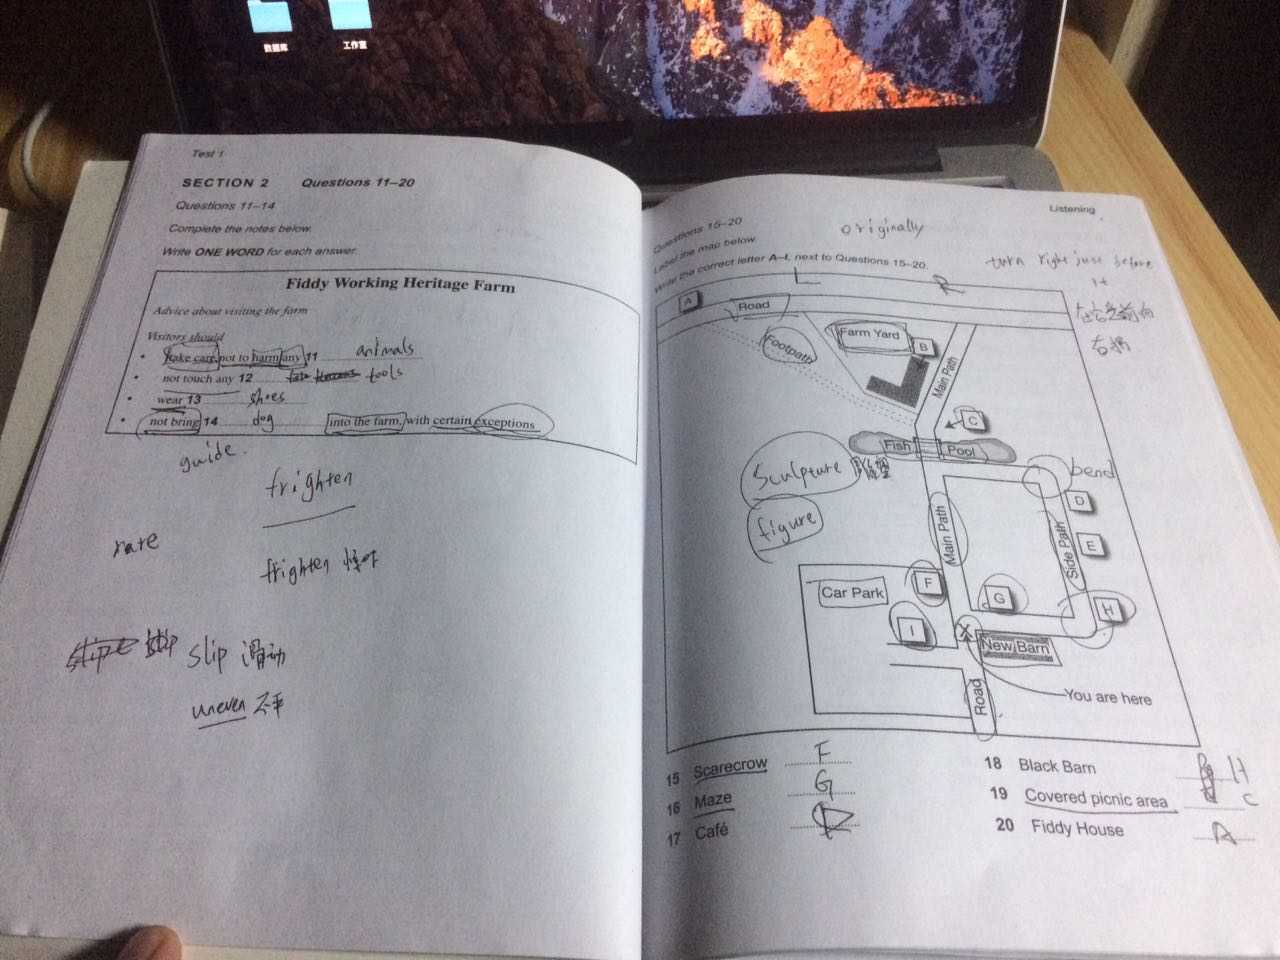 数据库
工作室
Test 1
SECTION 2 Questions 11–20
Questions 11–14
Complete the notes below.
Write ONE WORD for each answer.
Fiddy Working Heritage Farm
Advice about visiting the farm
Visitors should
• take care not to harm any 11 animals
• not touch any 12 tools
• wear 13 shoes
• not bring 14 dog into the farm, with certain exceptions
guide.
frighten
rare
frighten
slip 滑动
uneven 不平
Listening
Questions 15–20
originally
Label the map below.
Write the correct letter A–I, next to Questions 15–20.
turn right just before
it
L
R
右拐
A
Road
Footpath
Farm Yard
B
Main Path
C
Fish Pool
sculpture 雕塑
figure
bend
D
E
Main Path
Side Path
F
G
H
I
Car Park
X
New Barn
You are here
Road
15 Scarecrow F
16 Maze G
17 Café D
18 Black Barn H
19 Covered picnic area C
20 Fiddy House A